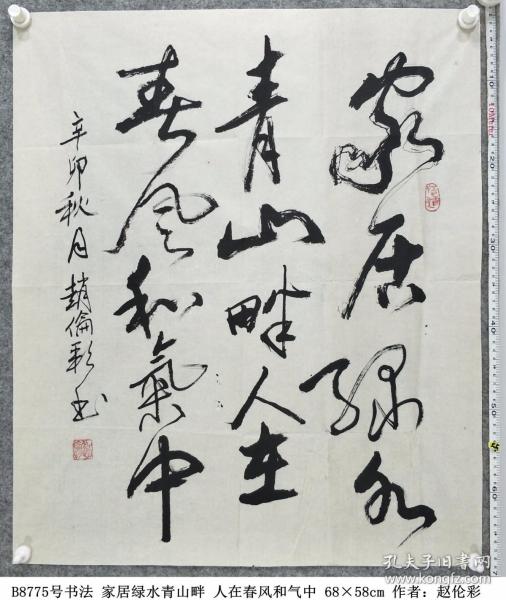 家居绿水
青山畔人在
春风和氣中
辛卯秋月趙倫彩书
孔夫子旧书网
www.kongfz.com
B8775号书法 家居绿水青山畔 人在春风和气中 68×58cm 作者：赵伦彩